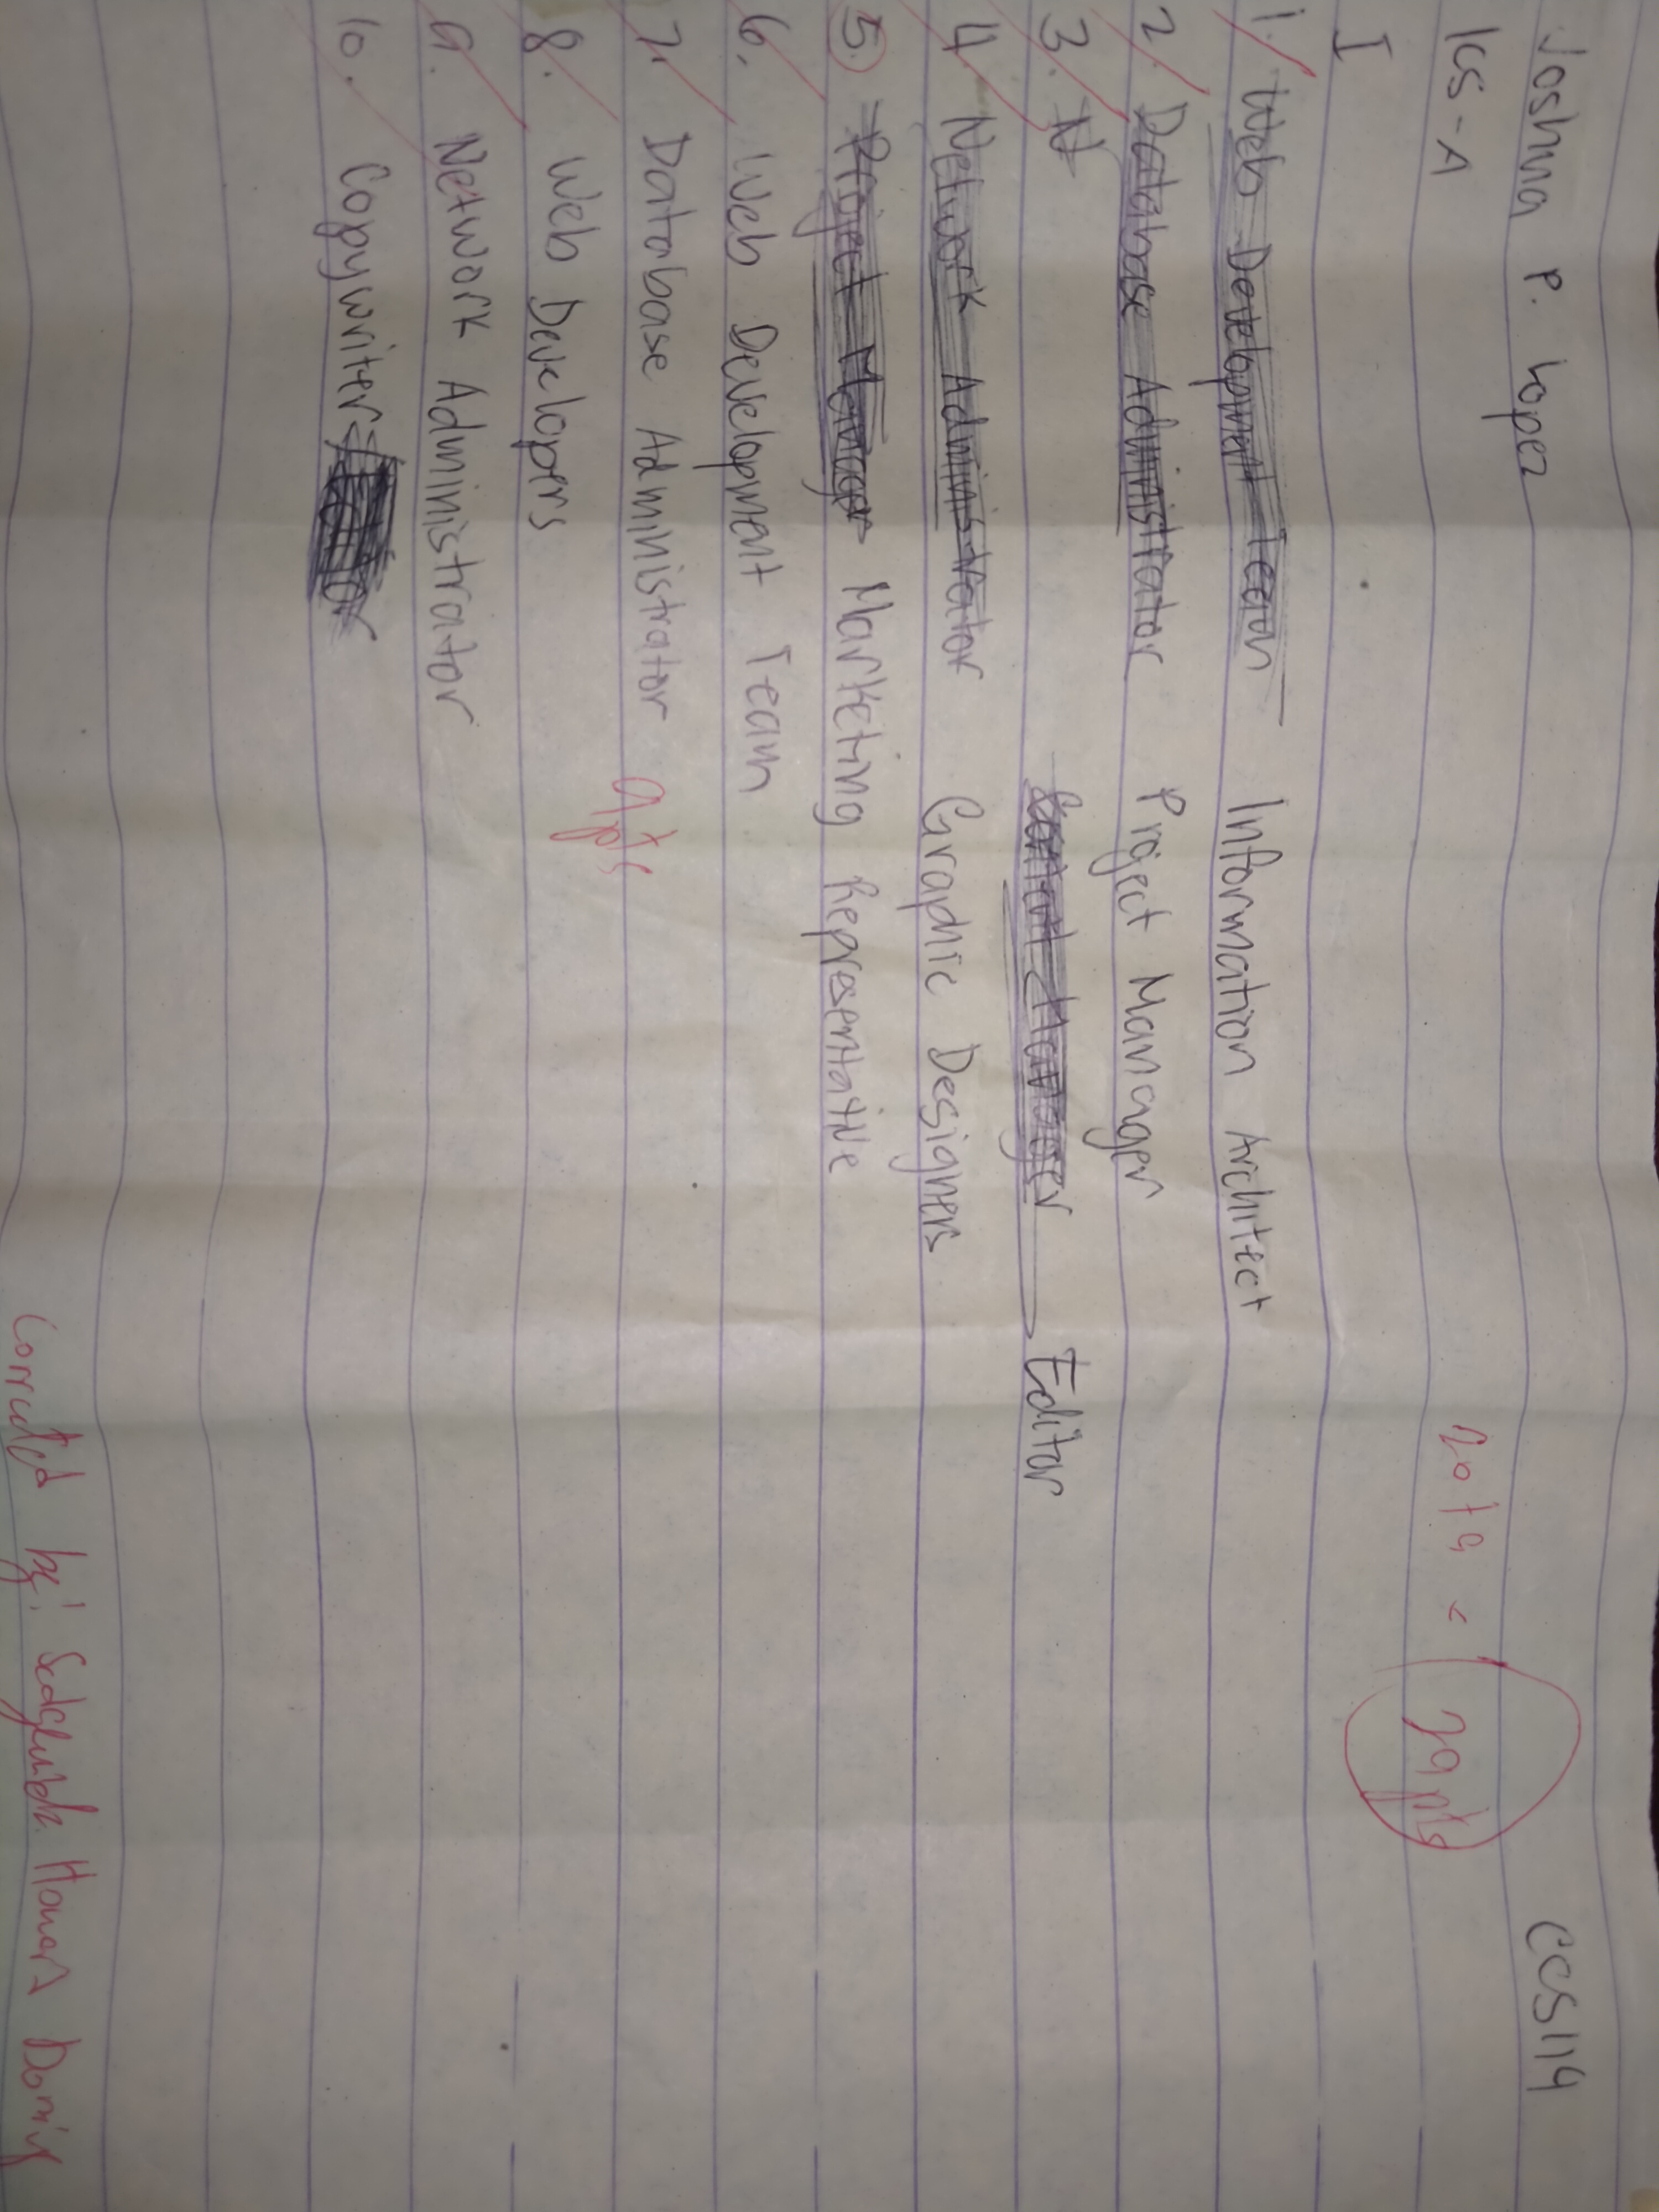 Joshua P. Lopez
CCS114
1CS-A
20+9 = 29pts
I
1. Web Development Team Information Architect
2. Database Administrator Project Manager
3. N Content Manager Editor
4 Network Administrator Graphic Designers
5. Project Manager Marketing Representative
6. Web Development Team
7. Database Administrator 9pts
8. Web Developers
9. Network Administrator
10. Copywriter Editor
Corrected by: Howard